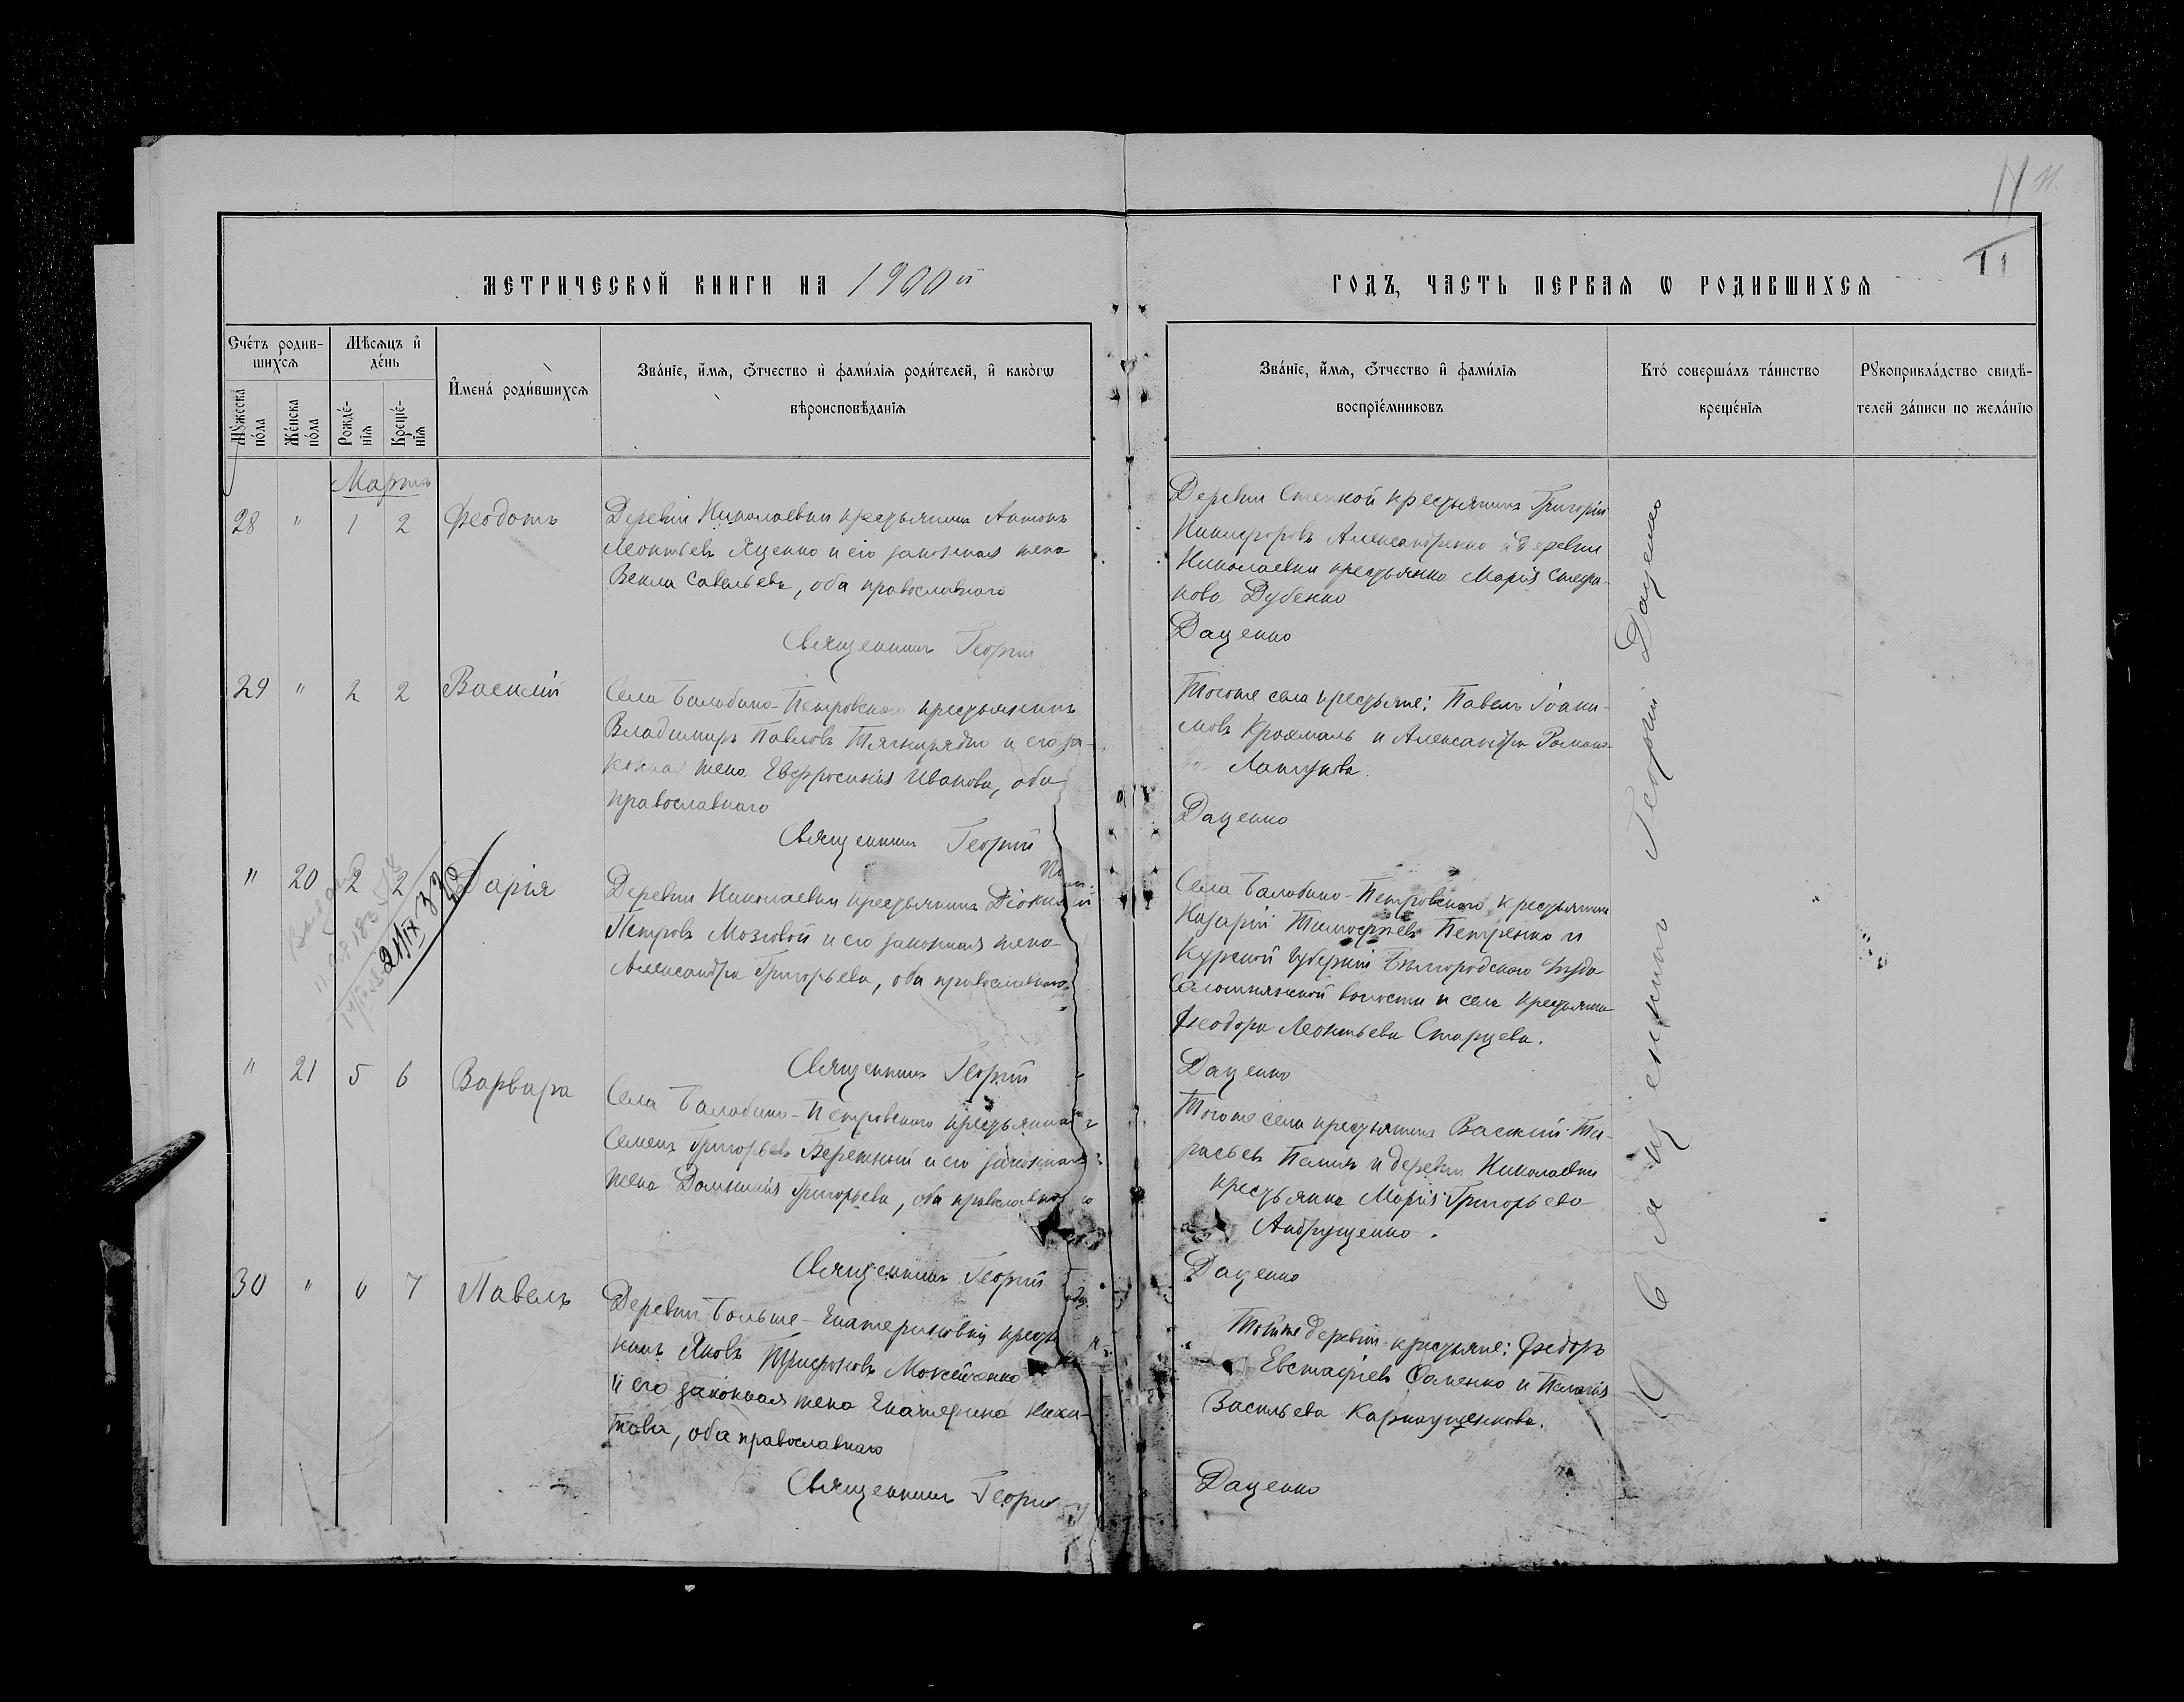 11
11
МЕТРИЧЕСКОЙ КНИГИ НА 1900й
ГОДЪ, ЧАСТЬ ПЕРВАѦ Ѡ РОДИВШИХСѦ
Сче́тъ родив-
шихсѧ
Мѣсѧцъ и҆
де́нь
И҆мена́ роди́вшихсѧ
Зва́нїе, и҆́мѧ, ѻ҆́тчество и҆ фами́лїѧ роди́телей, и҆ како́гѡ
вѣроисповѣ́данїѧ
Мꙋжеска
по́ла
Же́нска
по́ла
Рожде́-
нїѧ
Креще́-
нїѧ
Зва́нїе, и҆́мѧ, ѻ҆́тчество и҆ фами́лїѧ
воспрїе́мниковъ
Кто́ соверша́лъ та́инство
креще́нїѧ
Рꙋкоприкла́дство свидѣ́-
телей за́писи по жела́нїю
Мартъ
28 " 1 2 Феодотъ
Деревни Николаевки крестьянинъ Антонъ
Леонтьевъ Яценко и его законная жена
Векла Савельева, оба православнаго
Священникъ Георгій
Деревни Степной крестьянинъ Григорій
Никифоровъ Александренко и деревни
Николаевки крестьянка Марія Стефа-
нова Дубенко
Даценко
29 " 2 2 Василій
Села Балабино-Петровскаго крестьянинъ
Владимиръ Павловъ Тягнирядно и его за-
конная жена Евфросинія Иванова, оба
православнаго
Священникъ Георгій
Тогоже села крестьяне: Павелъ Іоаки-
мовъ Крохмаль и Александра Романо-
ва Лапунова.
Даценко
" 20 2 2 Дарія
21/IX 33
Деревни Николаевки крестьянинъ
Петровъ Мозговой и его законная жена
Александра Григорьева, оба православнаго
Священникъ Георгій
Села Балабино-Петровскаго крестьянинъ
Назарій Тимофеевъ Петренко и
Курской губерніи Бѣлгородскаго уѣзда
волости и села крестьянка
Феодора Леонтьева Старцева.
Даценко
" 21 5 6 Варвара
Села Балабино-Петровскаго крестьянинъ
Семенъ Григорьевъ Бережный и его законная
жена Домникія Григорьева, оба православнаго
Священникъ Георгій
Тогоже села крестьянинъ Василій Та-
расьевъ и деревни Николаевки
крестьянка Марія Григорьева
Андрущенко.
Даценко
30 " 6 7 Павелъ
Деревни Больше-Екатериновки крестья-
нинъ Яковъ Трифоновъ Можейченко
и его законная жена Екатерина Ники-
това, оба православнаго
Священникъ Георгій
Тойже деревни крестьяне: Федоръ
Евстафіевъ Фоменко и Пелагія
Васильева Карнаущенкова.
Даценко
Священникъ Георгій Даценко